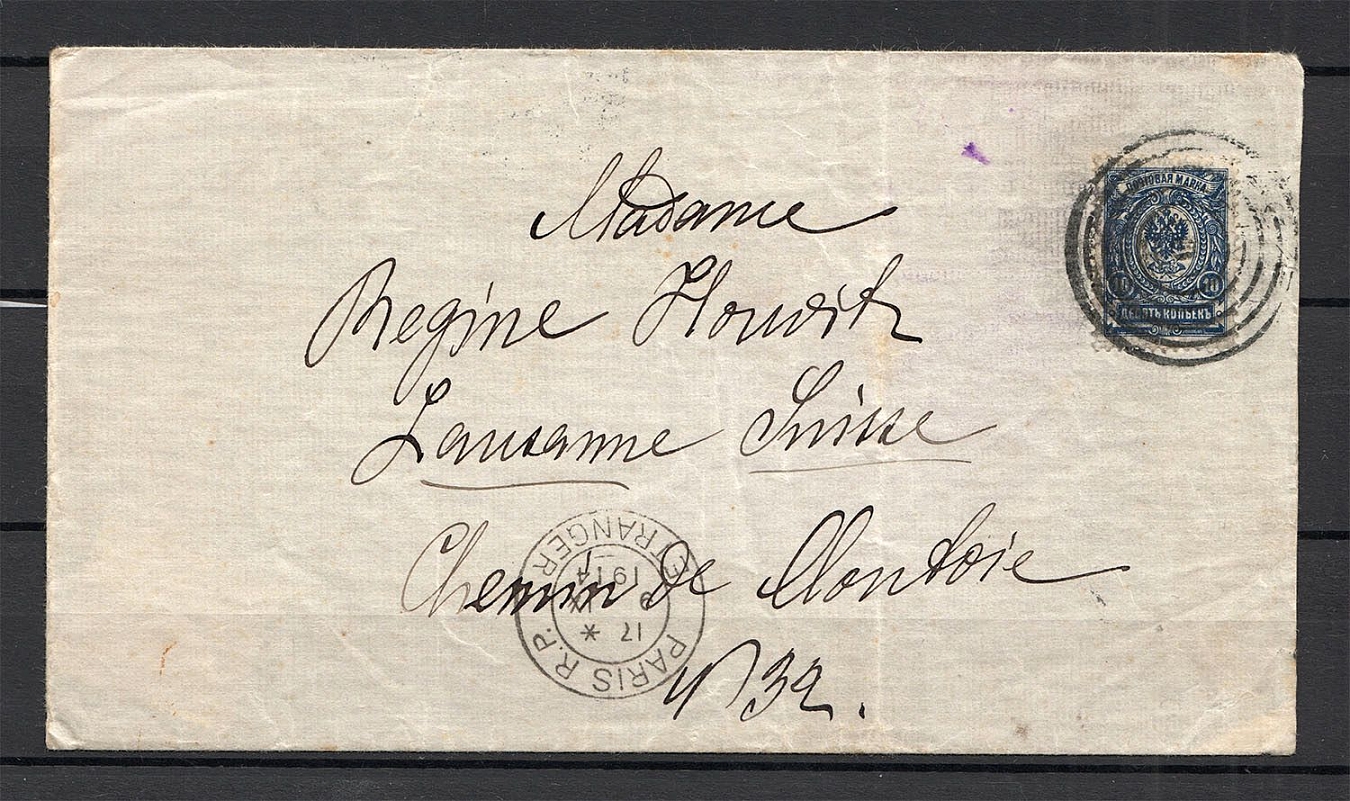 Madame
Regine Horwitz
Lausanne Suisse
Chemin de Montoie
№ 32.
ПОЧТОВАЯ МАРКА
10 10
ДЕСЯТЬ КОПѢЕКЪ
PARIS R.P.
ETRANGER
17 *
9
1914